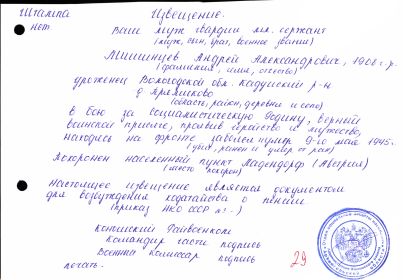 Штампа Извещение.
нет Ваш муж гвардии мл. сержант
(муж, сын, брат, военное звание)
Мишинцев Андрей Александрович, 1908 г.р.
(фамилия, имя, отчество)
уроженец Вологодской обл. Кадуйский р-н
д.
(область, район, деревня и село)
в бою за социалистическую Родину, верный
воинской присяге, проявив геройство и мужество,
находясь на фронте заболел умер 9-го мая 1945г.
(убит, ранен и умер от ран)
Похоронен населенный пункт Мадендорф (Австрия)
(место похорон)
Настоящее извещение является документом
для возбуждения ходатайства о пенсии
(приказ НКО СССР № -)
Райвоенком
Командир части подпись
Военный комиссар подпись
печать.
29